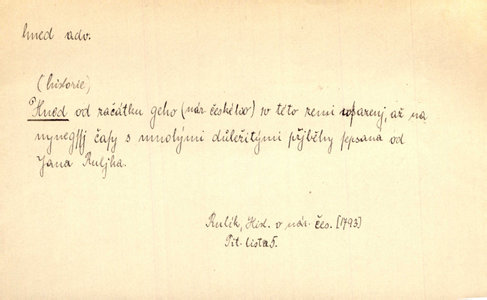 hned adv.
(historie)
Hned od začátku geho (nár. českého) w této zemi wsazený, až na
nynegssj časy s mnohými důležitými přjběhy sepsaná od
Jana Ruljka.
Rulík, Hist. o nár. čes. [1793]
Tit. lista 5.